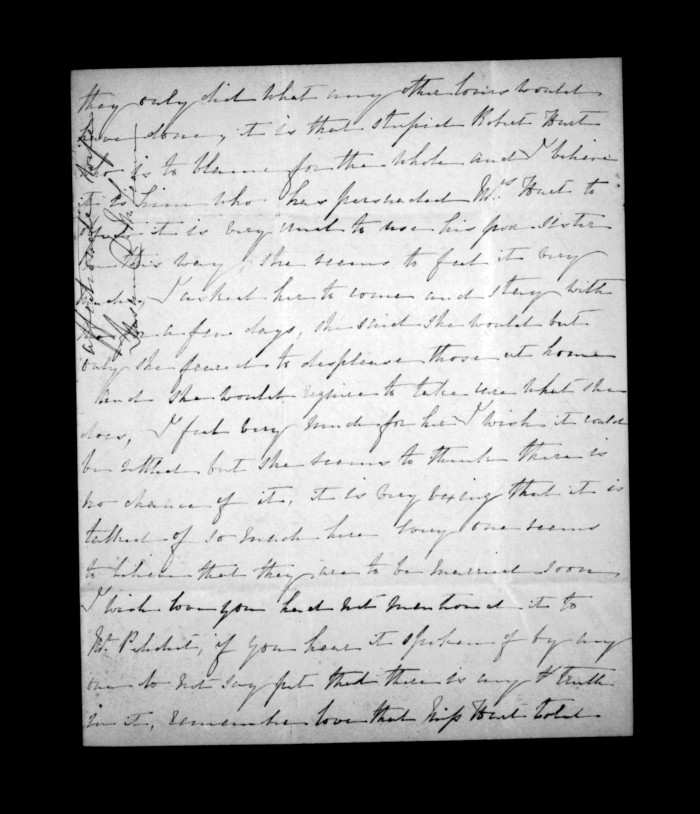 they only did what any other lovers would
have done, it is that stupid Robert Hart
who is to blame for the whole and I believe
it is him who has persuaded Mrs Hart to
it is very cruel to use his poor Sister
in this way, she seems to feel it very
much, I asked her to come and stay with
me a few days, she said she would but
only she feared to displease those at home
and she would require to take care what she
does, I feel very much for her I wish it could
be settled but she seems to think there is
no chance of it, it is very vexing that it is
talked of so much here every one seems
to believe that they are to be married soon
I wish love you had not mentioned it to
Mr if you hear it spoken of by any
one do not say yet that there is any truth
in it, remember love that Miss Hart told
affectionate wife
Susan